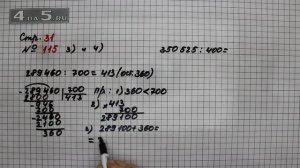 4u5.ru
Стр. 31
№ 115 3) и 4)
350 525 : 400=
289460 : 700 = 413 (ост.360)
289460 700
2800 413
946
700
2460
2100
360
пр: 1) 360 < 700
2) × 413
700
289100
3) 289100+360=
=